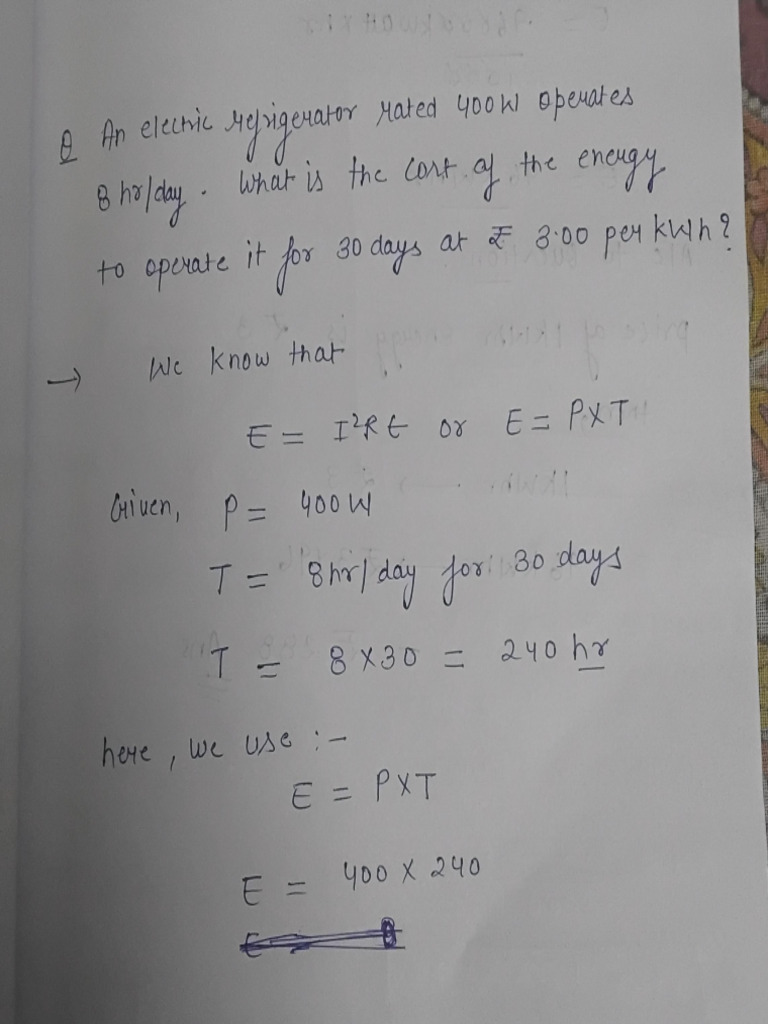 Q An electric refrigerator rated 400W operates
8 hr/day. What is the cost of the energy
to operate it for 30 days at ₹ 3.00 per kWh?
→ We know that
E = I²Rt or E = P×T
Given, P = 400W
T = 8hr/day for 30 days
T = 8×30 = 240 hr
here, we use :-
E = P×T
E = 400 × 240